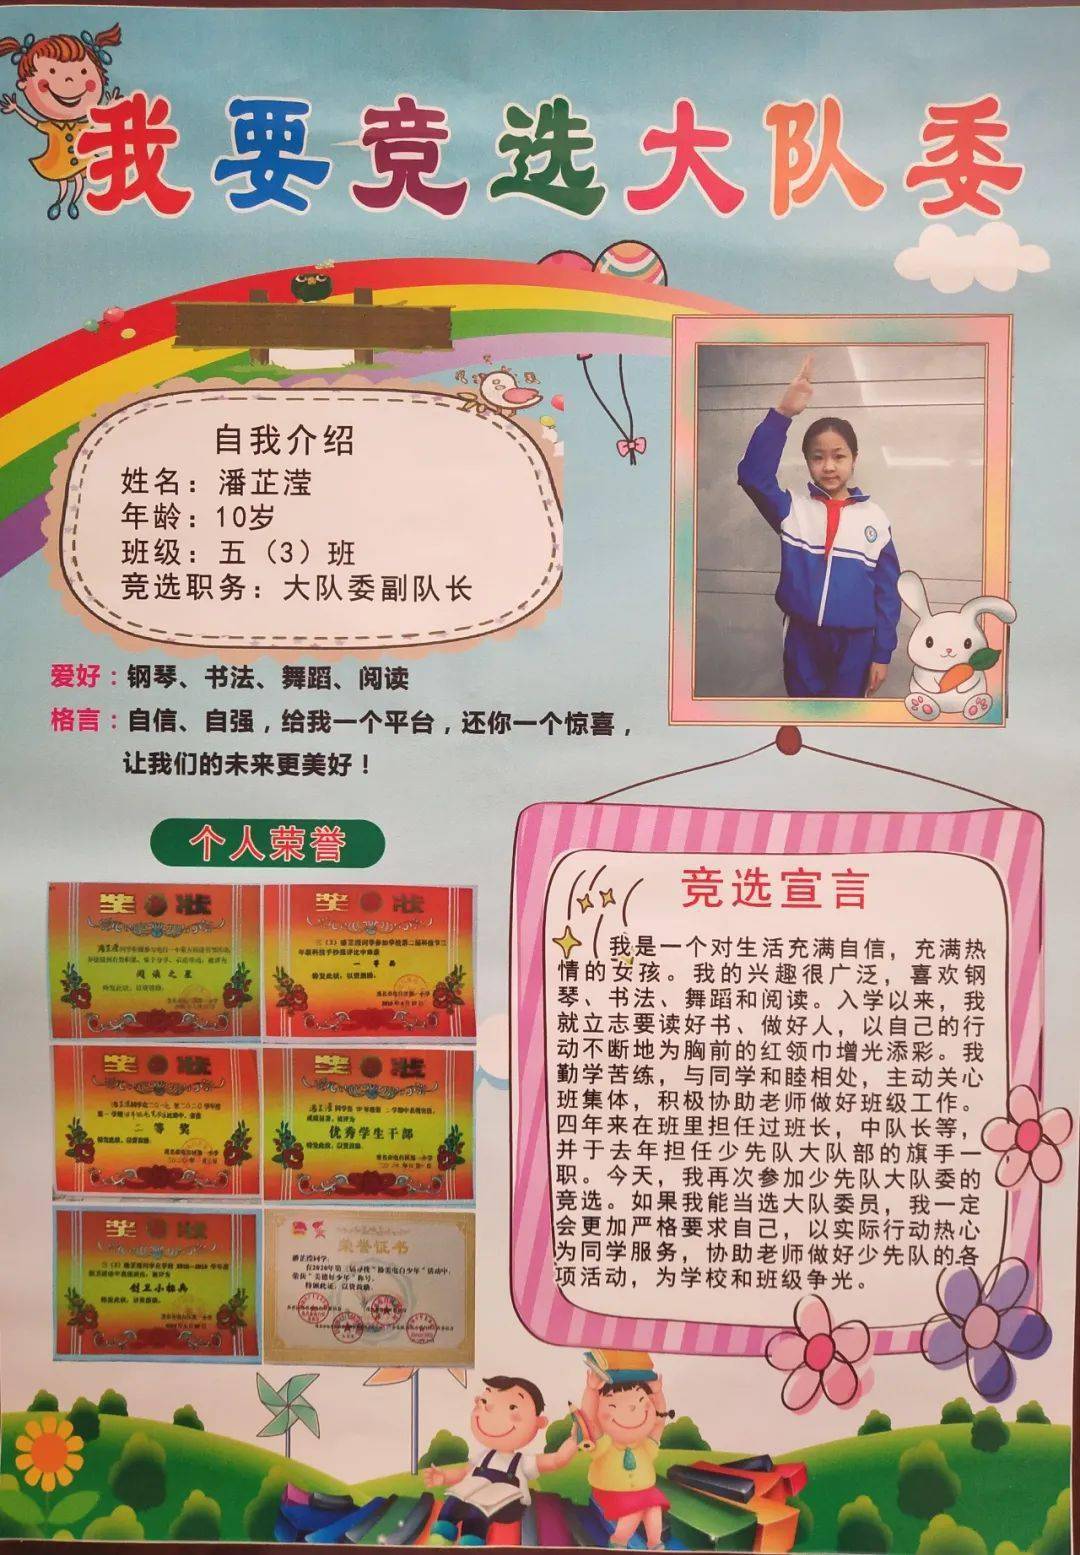 我要竞选大队委
自我介绍
姓名：潘芷滢
年龄：10岁
班级：五（3）班
竞选职务：大队委副队长
爱好：钢琴、书法、舞蹈、阅读
格言：自信、自强，给我一个平台，还你一个惊喜，
让我们的未来更美好！
个人荣誉
奖状
阅读之星
奖状
奖状
二等奖
奖状
优秀学生干部
奖状
创卫小标兵
荣誉证书
竞选宣言
我是一个对生活充满自信，充满热
情的女孩。我的兴趣很广泛，喜欢钢
琴、书法、舞蹈和阅读。入学以来，我
就立志要读好书、做好人，以自己的行
动不断地为胸前的红领巾增光添彩。我
勤学苦练，与同学和睦相处，主动关心
班集体，积极协助老师做好班级工作。
四年来在班里担任过班长，中队长等，
并于去年担任少先队大队部的旗手一
职。今天，我再次参加少先队大队委的
竞选。如果我能当选大队委员，我一定
会更加严格要求自己，以实际行动热心
为同学服务，协助老师做好少先队的各
项活动，为学校和班级争光。